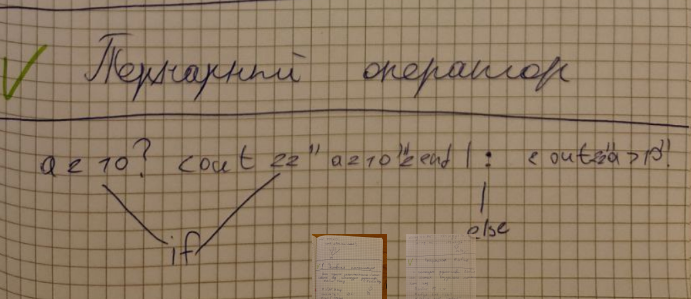 Тернарный оператор
a < 10? cout << " a < 10" << endl : cout << "a > 10"
if else